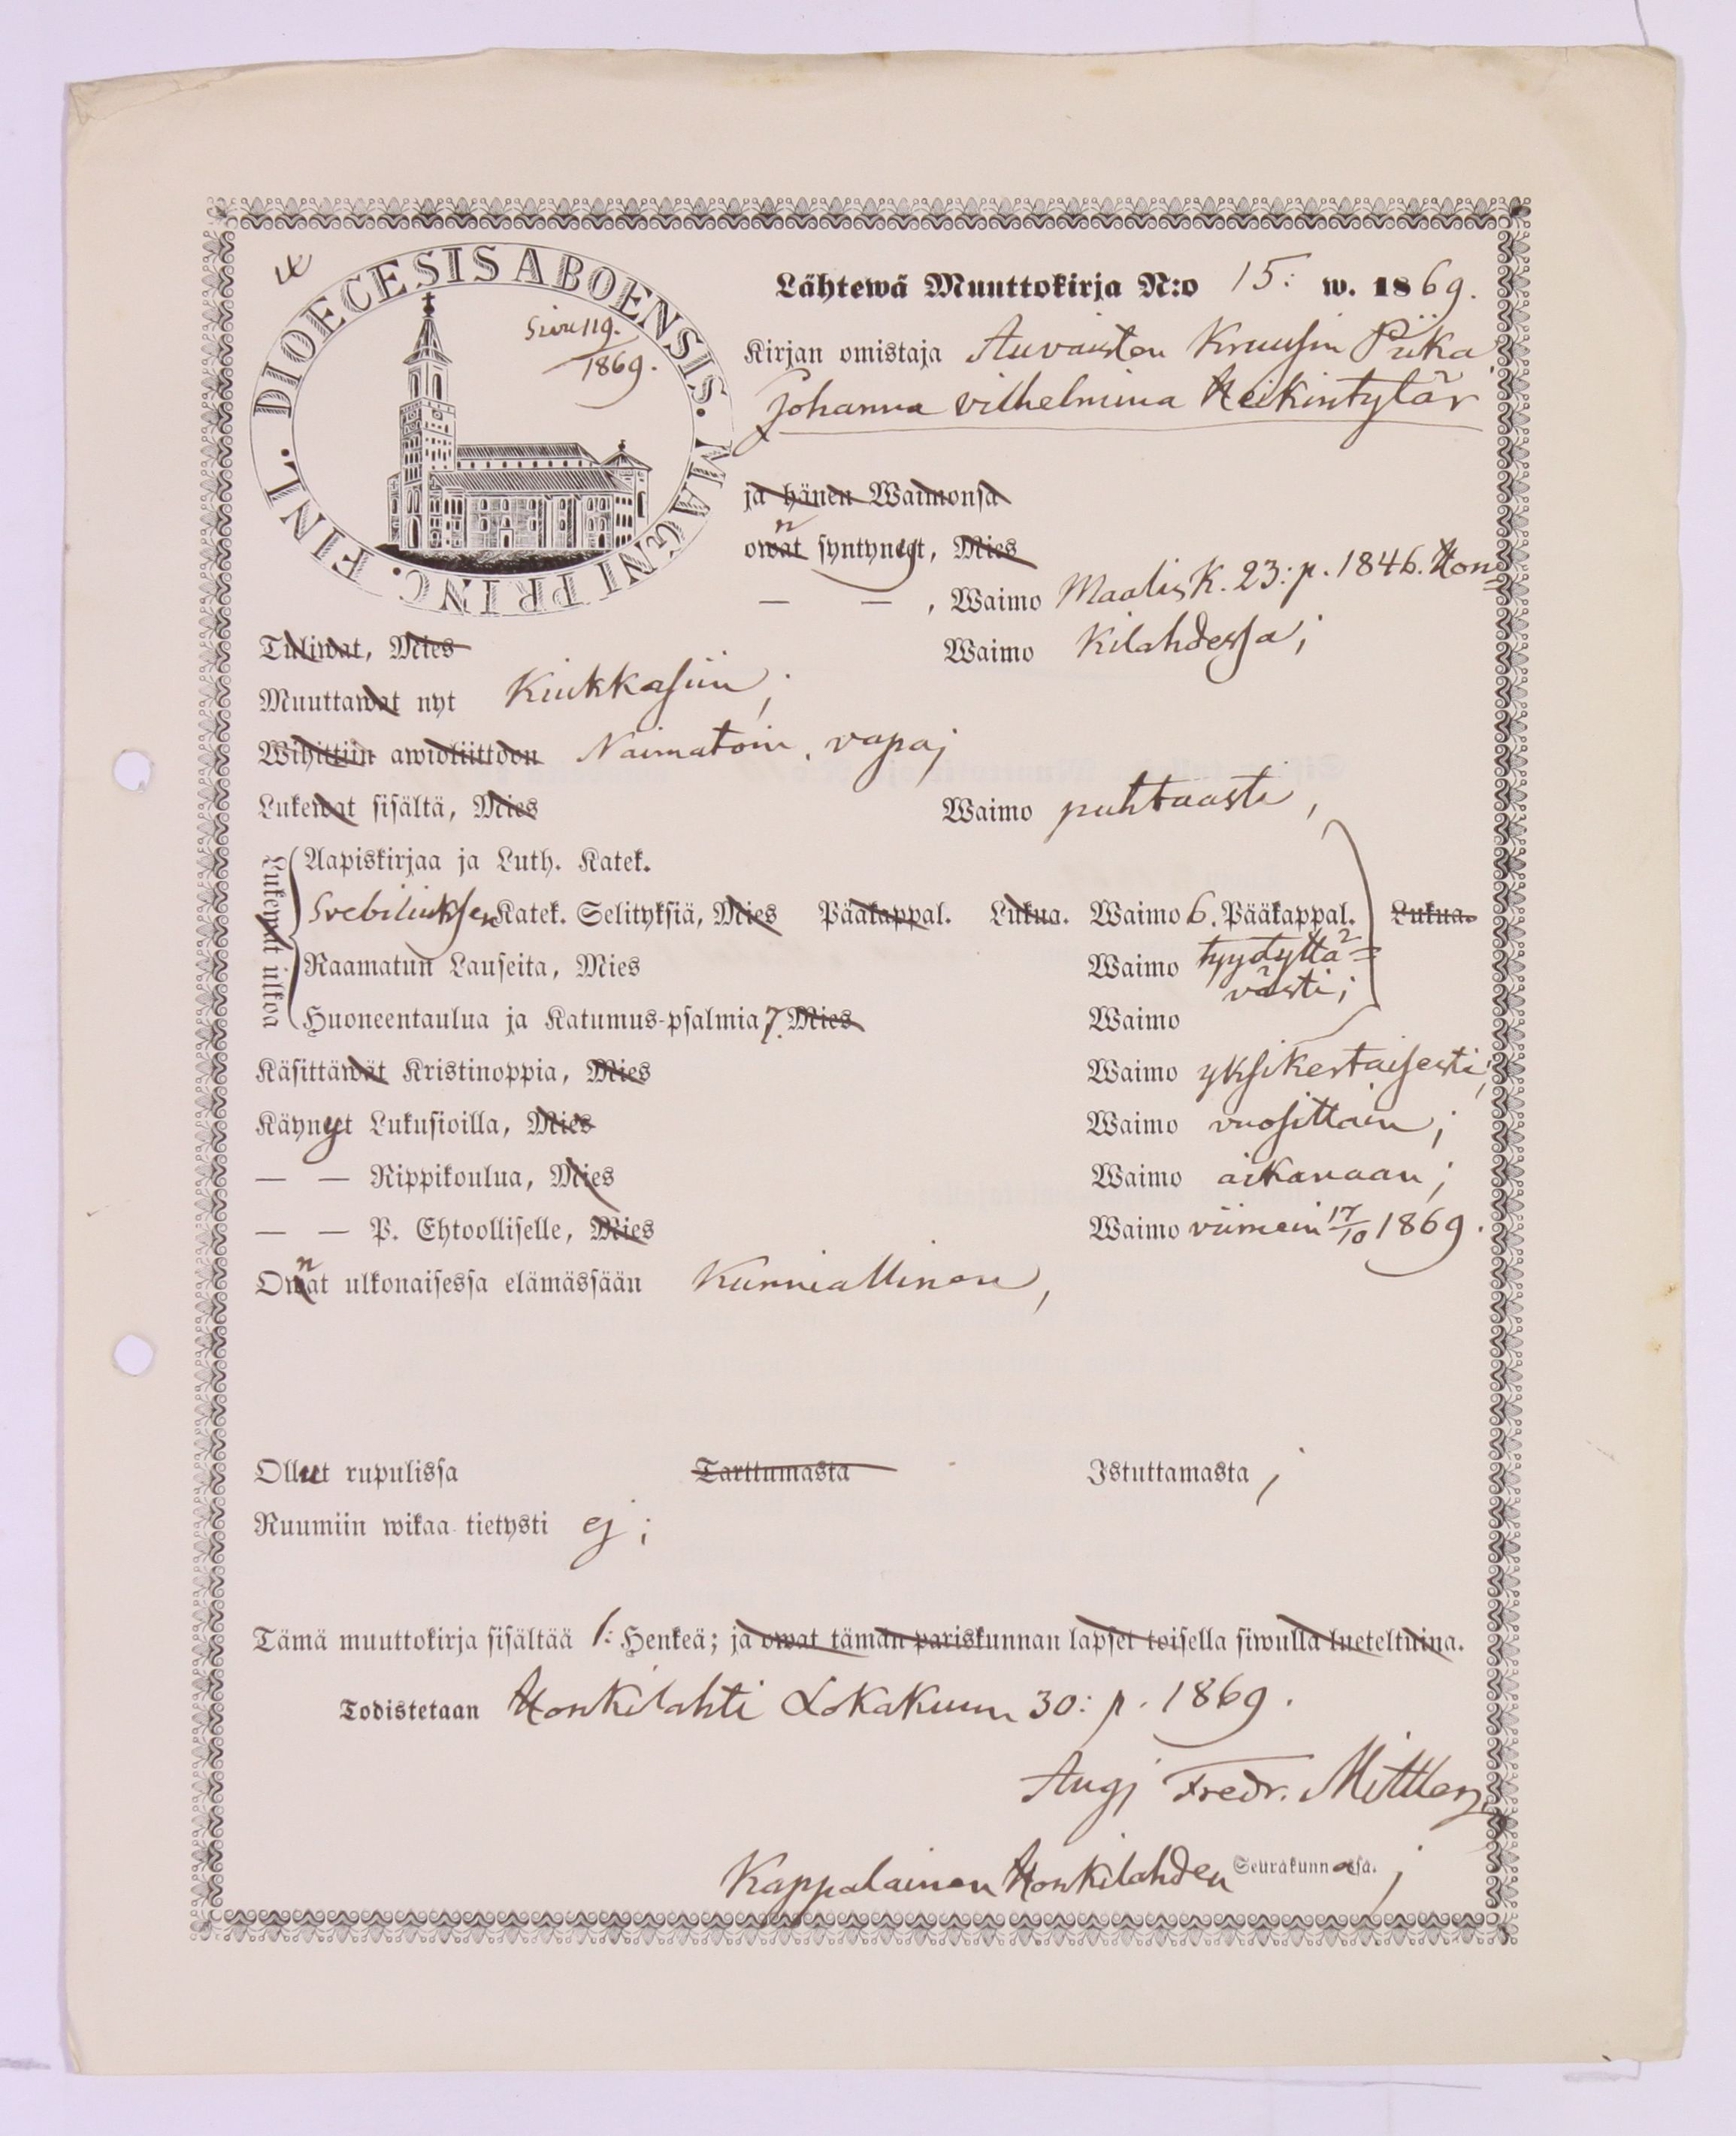 DIOECESIS ABOENSIS. MAGNI PRINC. FINL.
Sivu 119.
1869.
Lähtewä Muuttokirja N:o 15: w. 1869.
Kirjan omistaja Auvaisten Kruusin Piika
Johanna vilhelmina Heikintytär
ja hänen Waimonsa
owat n syntynyt, Mies
— — , Waimo Maalisk. 23: p. 1846. Hon=
Tuliwat, Mies Waimo Kilahdessa;
Muuttawat nyt Kiukkasiin;
Wihittiin awioliittoon Naimatoin, vapaj
Lukewat sisältä, Mies Waimo puhtaasti,
Lukewat ulkoa
Aapiskirjaa ja Luth. Katek.
Svebiliuksen Katek. Selityksiä, Mies Pääkappal. Lukua. Waimo 6. Pääkappal. Lukua.
Raamatun Lauseita, Mies Waimo tyydyttä=
västi;
Huoneentaulua ja Katumus-psalmia 7. Mies Waimo
Käsittäwät Kristinoppia, Mies Waimo yksikertaisesti;
Käynyt Lukusioilla, Mies Waimo vuosittain;
— — Rippikoulua, Mies Waimo aikanaan;
— — P. Ehtoolliselle, Mies Waimo viimein 17/10 1869.
Owat n ulkonaisessa elämässään Kunniallinen,
Ollut rupulissa Tarttumasta Istuttamasta ;
Ruumiin wikaa tietysti ej;
Tämä muuttokirja sisältää 1: Henkeä; ja owat tämän pariskunnan lapset toisella siwulla lueteltuina.
Todistetaan Honkilahti Lokakuun 30: p. 1869.
Fredr.
Kappalainen Honkilahden Seurakunnassa. ;